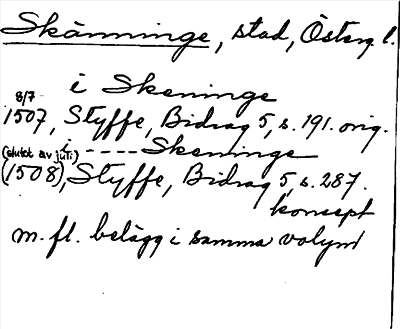 Skänninge, stad, Österg. l.
i Skeninge
8/7
1507, Styffe, Bidrag 5, s. 191. orig.
(slutet av juli) i - - - - Skeninge
(1508), Styffe, Bidrag 5, s. 287.
koncept
m. fl. belägg i samma volym